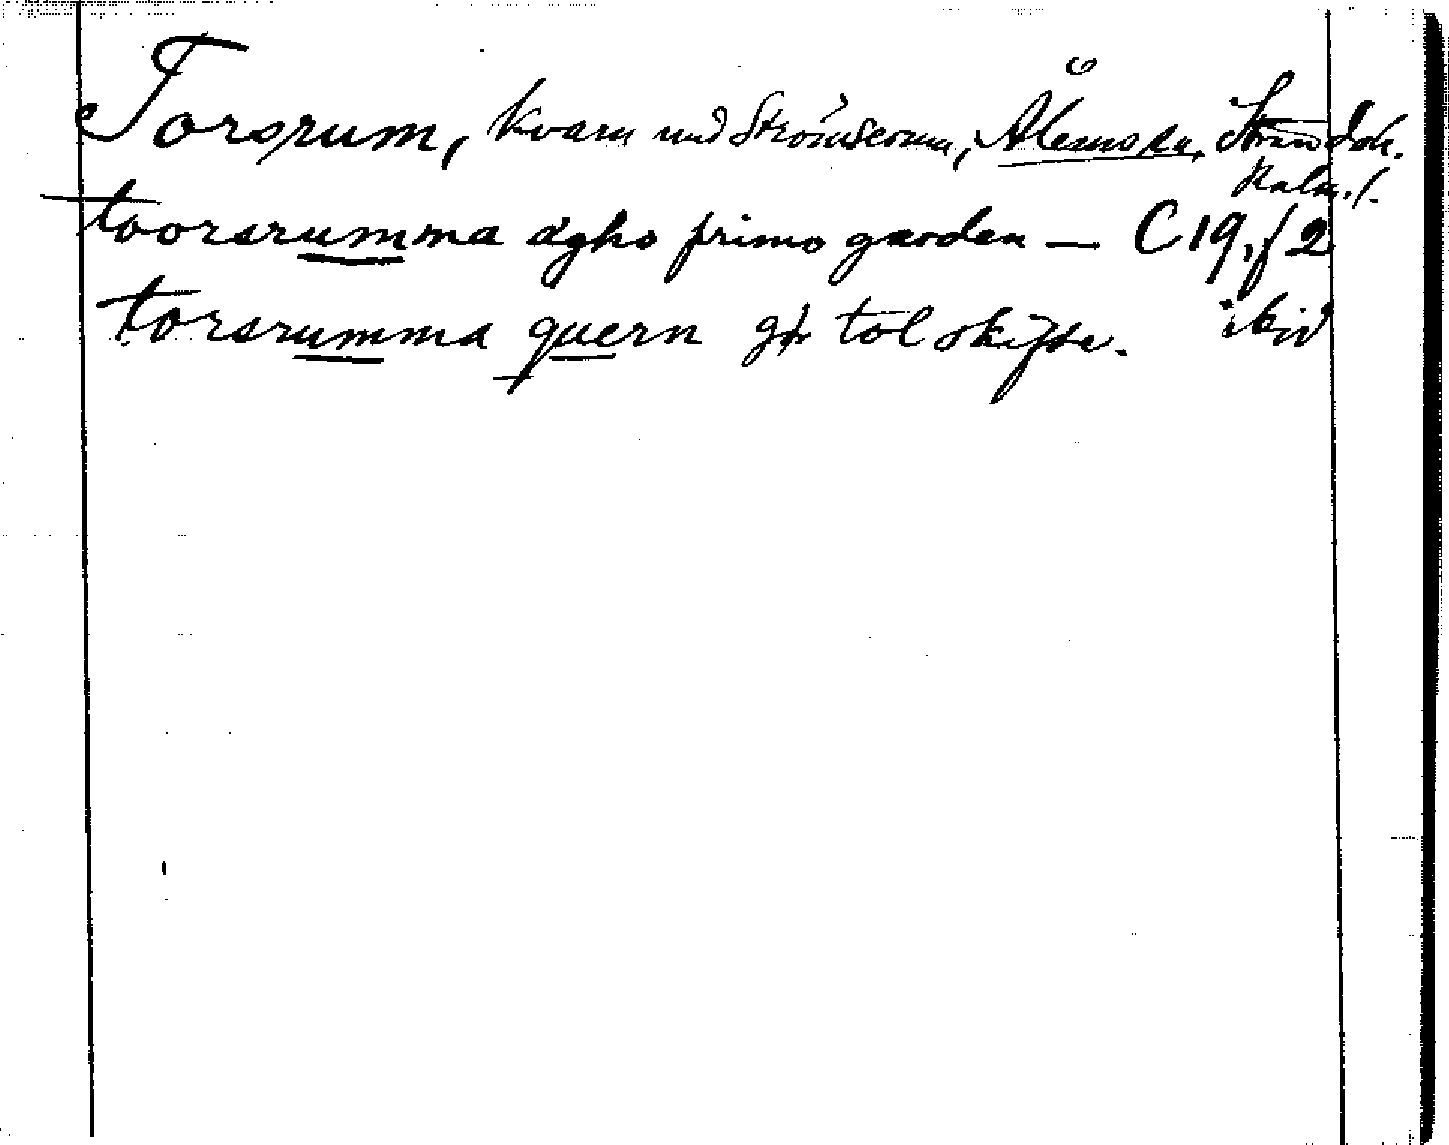 Torsrum, kvarn und Strömserum, Ålems sn, Stranda h. Kalm. l.
toorsrumma ägho primo garden — C 19, f 2
torsrumma quern gør tol skipte. ibid